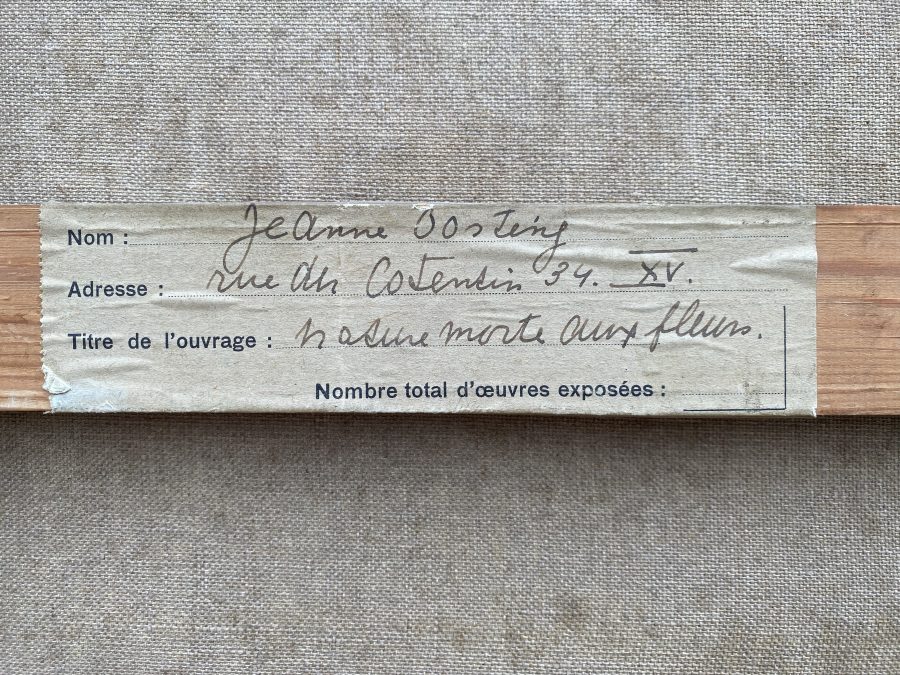 Nom : Jeanne Oosting
Adresse : rue du Cotentin 34. XV.
Titre de l'ouvrage : nature morte aux fleurs.
Nombre total d'œuvres exposées :